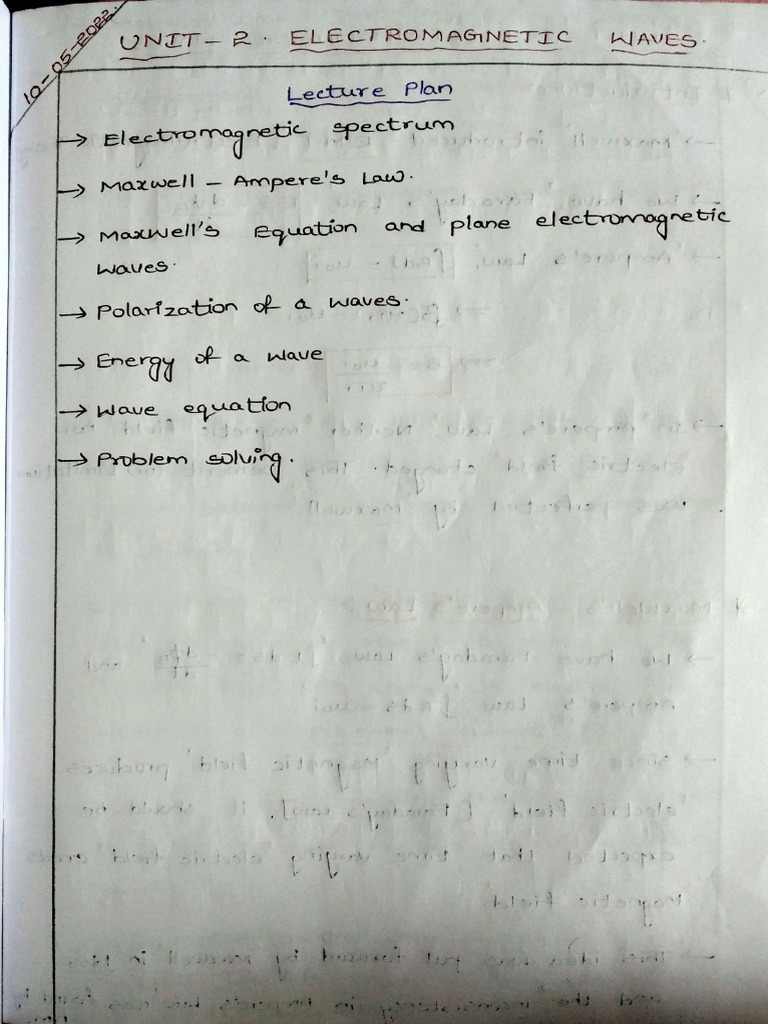 10-05-2022.
UNIT - 2. ELECTROMAGNETIC WAVES.
Lecture Plan
→ Electromagnetic spectrum
→ Maxwell - Ampere's Law.
→ Maxwell's Equation and plane electromagnetic
waves.
→ Polarization of a waves.
→ Energy of a wave
→ Wave equation
→ Problem solving.